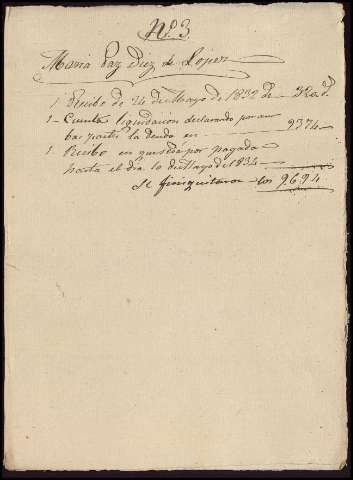 Nº 3
Maria Paz Diez de Lopez
1 Recibo de 24 de Mayo de 1832 de 320 d.
1 Cuenta liquidacion declarando por am
bas partes la deuda en 9374
1 Recibo en que se dá por pagada
hasta el dia 10 de Mayo de 1834
Se finiquitaron los 9694